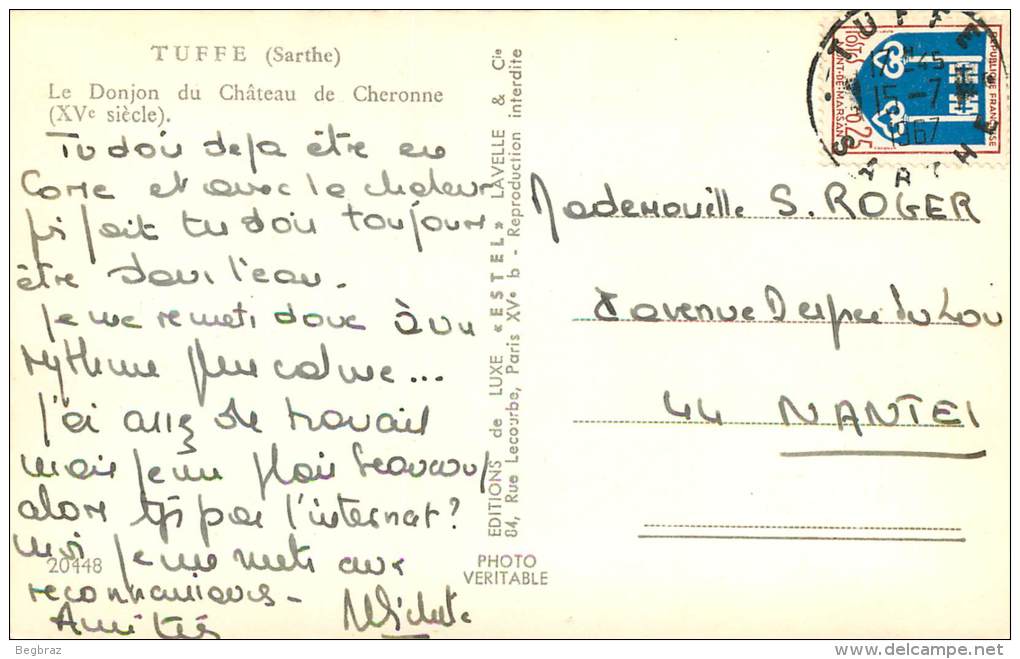 TUFFE (Sarthe)
Le Donjon du Château de Cheronne
(XVe siècle).
Tu dois deja être en
Corse et avec la chaleur
qu'il fait tu dois toujours
être dans l'eau.
Je me remets donc à un
rythme plus calme...
J'ai assez de travail
mais je me plais beaucoup
alors tjs pas l'internat?
moi je me mets aux
reconnaissances -
Amitiés Michele
20448
EDITIONS de LUXE « ESTEL » LAVELLE & Cie
84, Rue Lecourbe, Paris XVe b - Reproduction interdite
PHOTO
VERITABLE
TUFFE
17H45
15-7
1967
SARTHE
REPUBLIQUE FRANÇAISE
POSTES 0,25
MONT-DE-MARSAN
Mademoiselle S. ROGER
avenue Des
44 NANTES
Begbraz